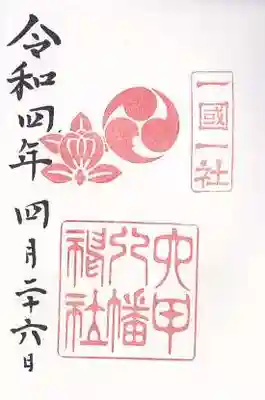 一國一社
六甲
八幡
神社
令和四年 四月二十六日